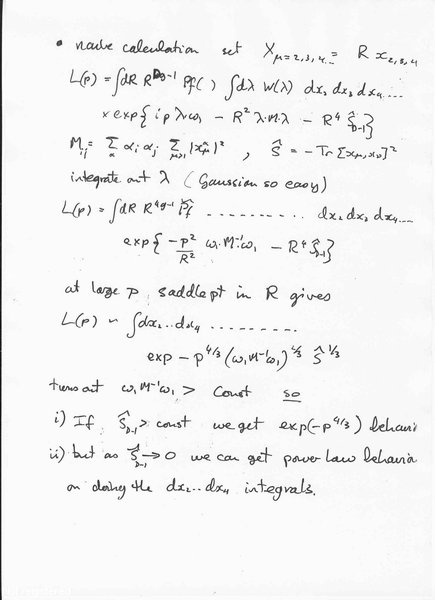 • naive calculation set X_{μ=2,3,4..} = R x_{2,3,4}
L(p) = ∫dR R^{Dg-1} Pf( ) ∫dλ W(λ) dx₂ dx₃ dx₄....
× exp{ i p λ·ω₁ - R² λ·M·λ - R⁴ Ŝ_{D-1} }
M_{ij} = Σ_α α_i α_j Σ_{μ>1} |x_μ^α|² , Ŝ = -Tr [x_μ, x_ν]²
integrate out λ (Gaussian so easy)
L(p) = ∫dR R^{4g-1} P̂f .......... dx₂ dx₃ dx₄....
exp{ -p²/R² ω₁·M⁻¹ω₁ - R⁴ Ŝ_{D-1} }
at large p, saddle pt in R gives
L(p) ~ ∫dx₂..dx₄ .........
exp - p^{4/3} (ω₁M⁻¹ω₁)^{2/3} Ŝ^{1/3}
turns out ω₁M⁻¹ω₁ > Const so
i) If Ŝ_{D-1} > const we get exp(-p^{4/3}) behavior
ii) but as Ŝ_{D-1} → 0 we can get power law behavior
on doing the dx₂..dx₄ integrals.